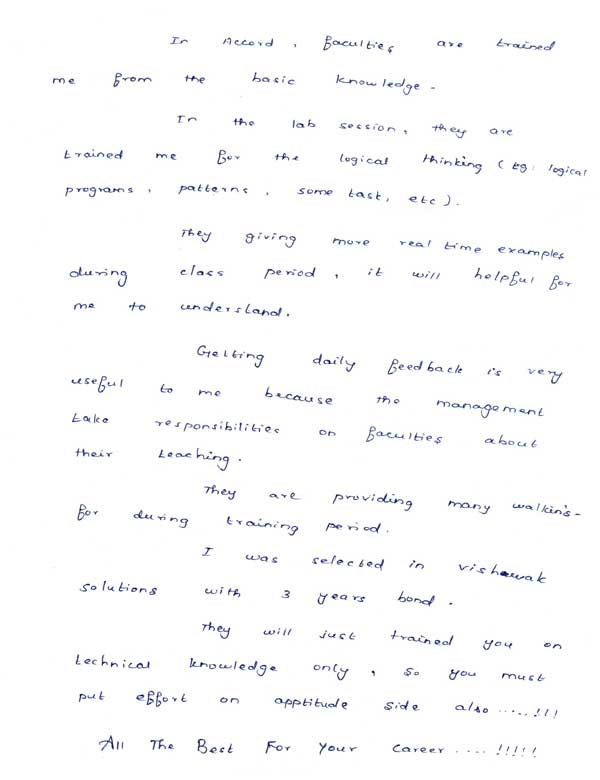 In Accord, faculties are trained
me from the basic knowledge.
In the lab session, they are
trained me for the logical thinking (eg: logical
programs, patterns, some task, etc).
They giving more real time examples
during class period, it will helpful for
me to understand.
Getting daily feedback is very
useful to me because the management
take responsibilities on faculties about
their teaching.
They are providing many walkin's-
for during training period.
I was selected in vishawak
solutions with 3 years bond.
They will just trained you on
technical knowledge only, so you must
put effort on apptitude side also .....!!!
All The Best For Your Career ....!!!!!